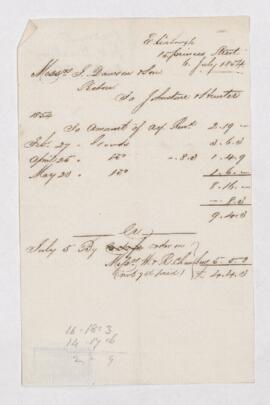 Edinburgh
15 Princes Street
6 July 1854
Messrs J. Dawson & Son
Kelso
To Johnstone & Hunter
1854
To Amount of a/c Rent 2.19 -
Feby. 27 - Goods 3.6.3
April 26 " Do - 8.3 1.4.9
May 20 " Do 1.6.-
8.16.-
- 8.3
9.4.3
Cr
July 5 By order on
Messrs W & R Chambers 5.0.0
£4.4.3